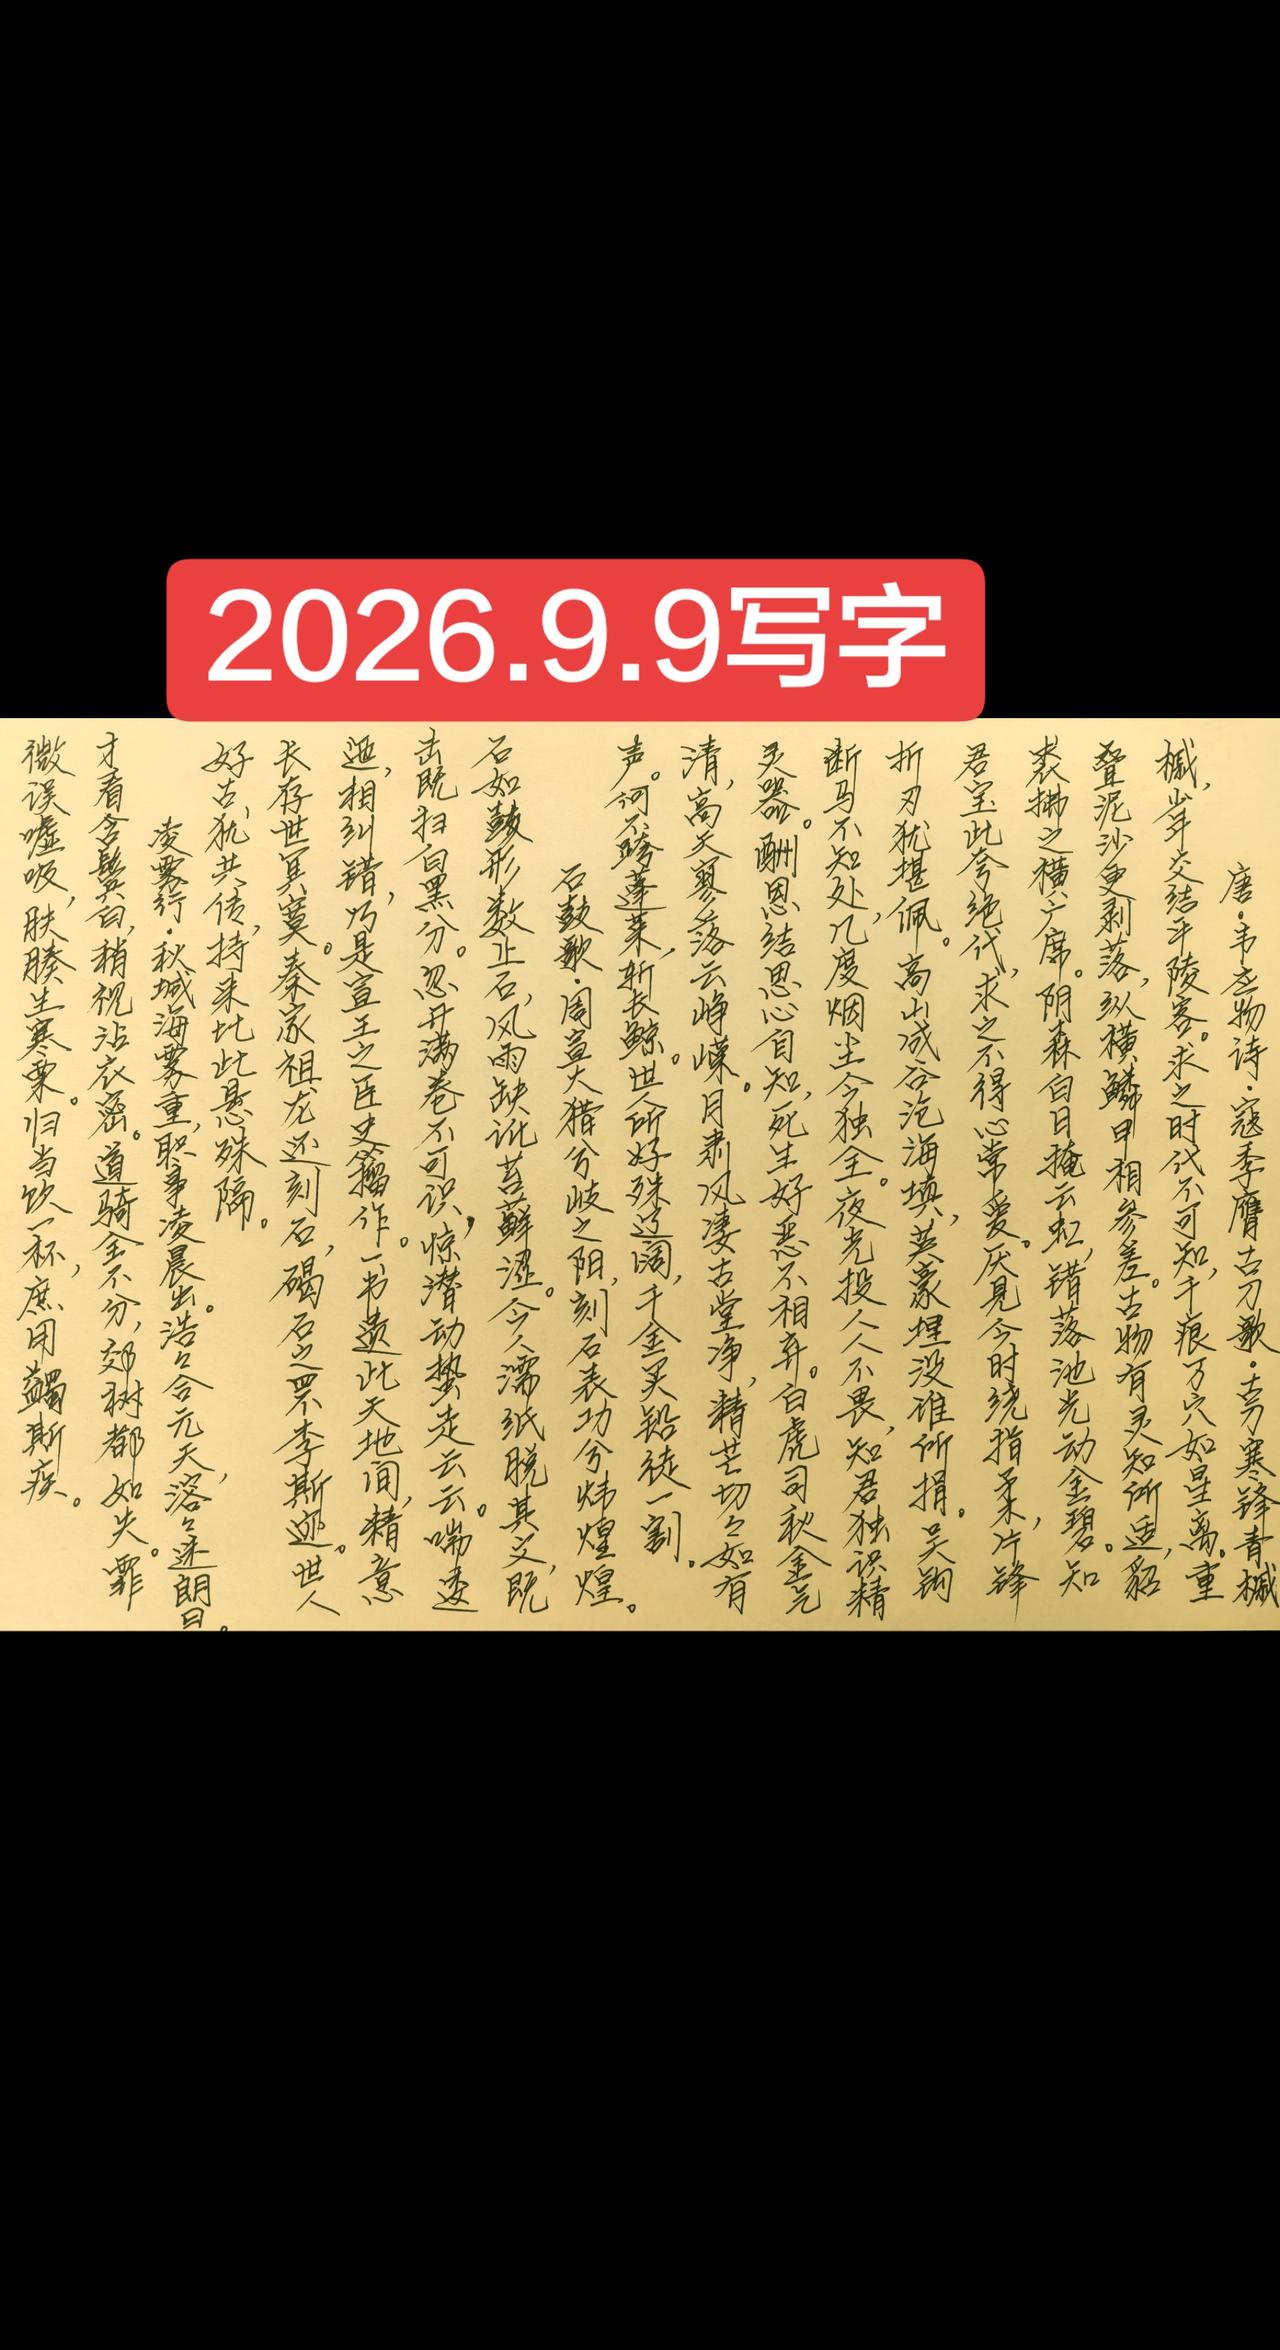 2026.9.9写字
唐·韦应物诗·寇季膺古刀歌·古刀寒锋青槭
槭,少年交结平陵客。求之时代不可知,千痕万穴如星离。重
叠泥沙更剥落,纵横鳞甲相参差。古物有灵知所适,貂
裘拂之横广席。阴森白日掩云虹,错落池光动金碧。知
君宝此夸绝代,求之不得心常爱。厌见今时绕指柔,片锋
折刃犹堪佩。高山成谷沧海填,英豪埋没谁所捐。吴钩
断马不知处,几度烟尘今独全。夜光投人人不畏,知君独识精
灵器。酬恩结思心自知,死生好恶不相弃。白虎司秋金气
清,高天寥落云峥嵘。月肃风凄古堂净,精芒切々如有
声。何不跨蓬莱,斩长鲸。世人所好殊辽阔,千金买铅徒一割。
石鼓歌·周宣大猎兮岐之阳,刻石表功兮炜煌煌。
石如鼓形数止石,风雨缺讹苔藓涩。今人濡纸脱其文,既
击既扫白黑分。忽开满卷不可识,惊潜动蛰走云云。喘逶
迤,相纠错,乃是宣王之臣史籀作。一书遗此天地间,精意
长存世冥寞。秦家祖龙还刻石,碣石之罘李斯迹。世人
好古犹共传,持来比此悬殊隔。
凌雾行·秋城海雾重,职事凌晨出。浩々合元天,溶々迷朗日。
才看含鬓白,稍视沾衣密。道骑全不分,郊树都如失。霏
微误嘘吸,肤腠生寒栗。归当饮一杯,庶用蠲斯疾。